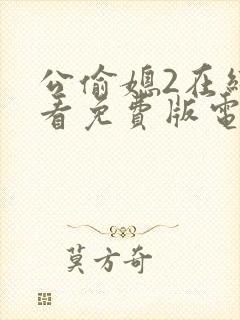 公偷媳2在線
看免費版電
莫方奇